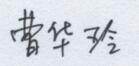 曹华玲